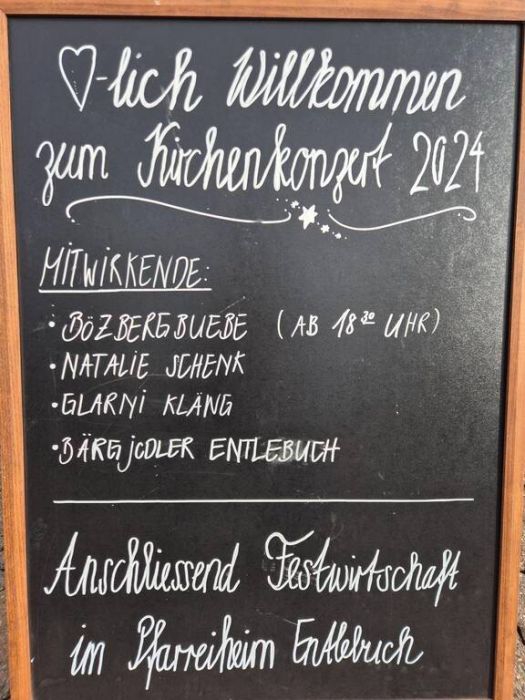 ♡-lich Willkommen
zum Kirchenkonzert 2024
MITWIRKENDE:
• BÖZBERGBUEBE (AB 18³⁰ UHR)
• NATALIE SCHENK
• GLARNI KLÄNG
• BÄRGJODLER ENTLEBUCH
Anschliessend Festwirtschaft
im Pfarreiheim Entlebuch